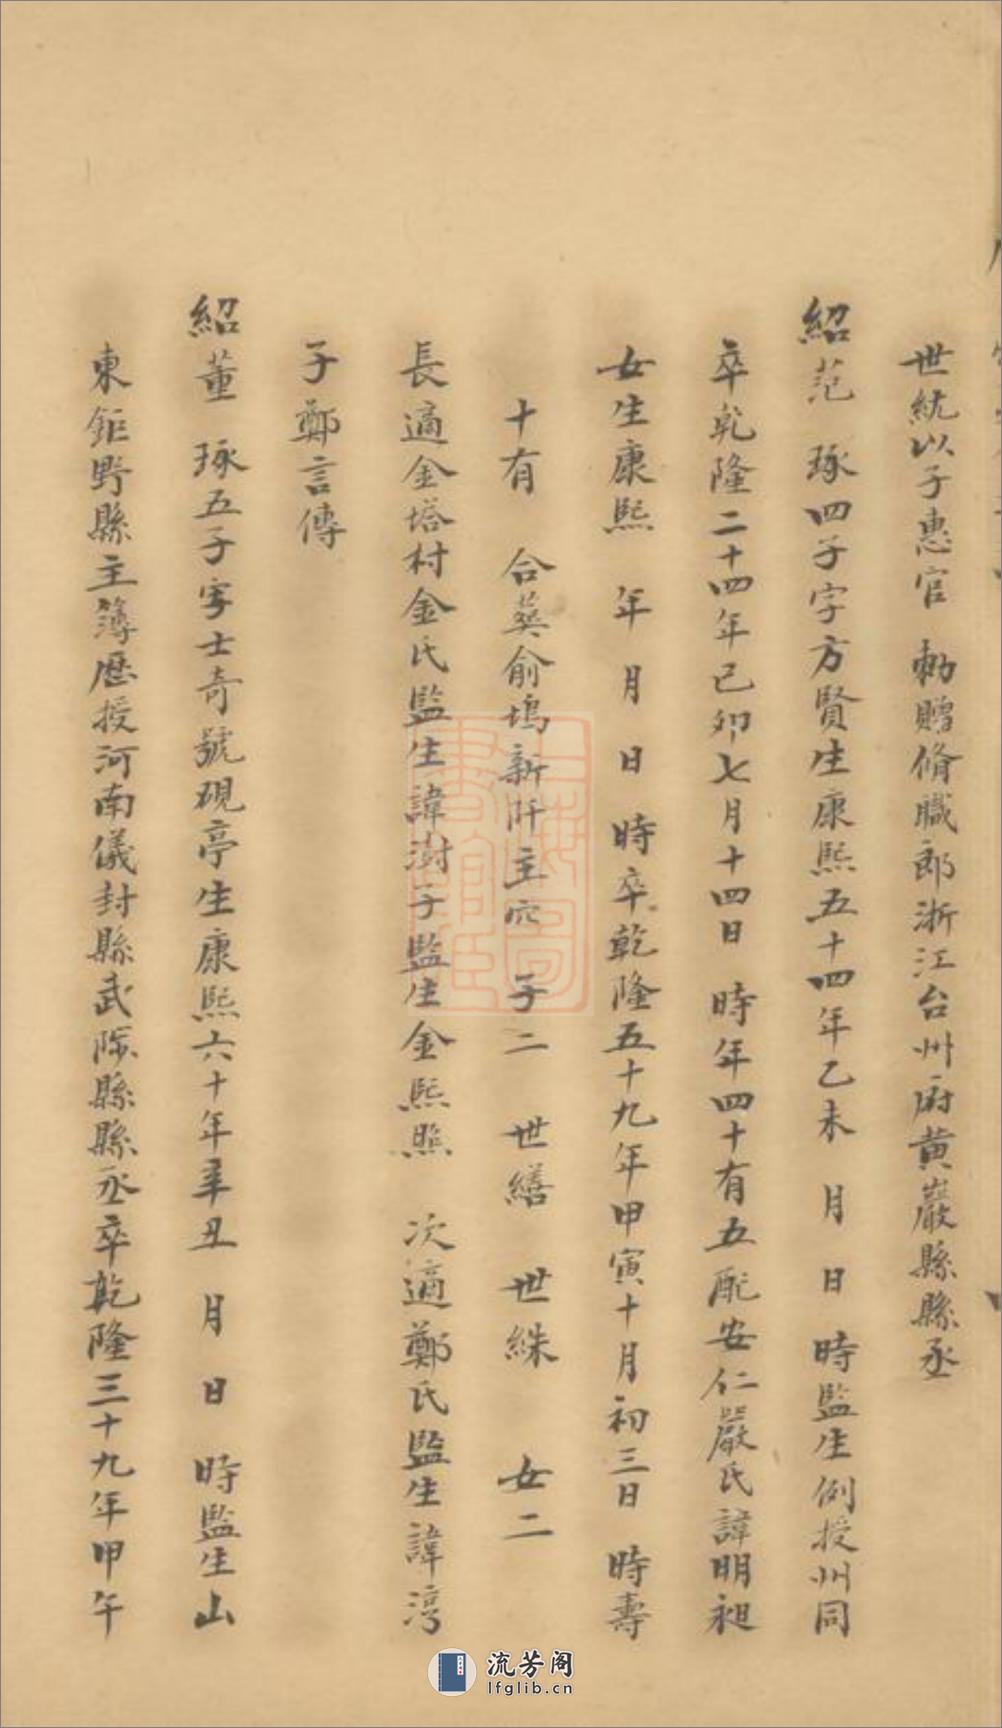 世統以子惠官　勅贈脩職郎浙江台州府黃巖縣縣丞
紹范　琢四子字方賢生康熙五十四年乙未　月　日　時監生例授州同
卒乾隆二十四年己卯七月十四日　時年四十有五配安仁嚴氏諱明昶
女生康熙　年　月　日　時卒乾隆五十九年甲寅十月初三日　時壽
十有　合葬俞塢新阡主穴　子二　世繕　世絑　女二
長適金塔村金氏監生諱澍子監生金熙照　次適鄭氏監生諱湾
子鄭言傳
紹董　琢五子字士奇號硯亭生康熙六十年辛丑　月　日　時監生山
東鉅野縣主簿歷授河南儀封縣武陟縣縣丞卒乾隆三十九年甲午
流芳阁
lfglib.cn